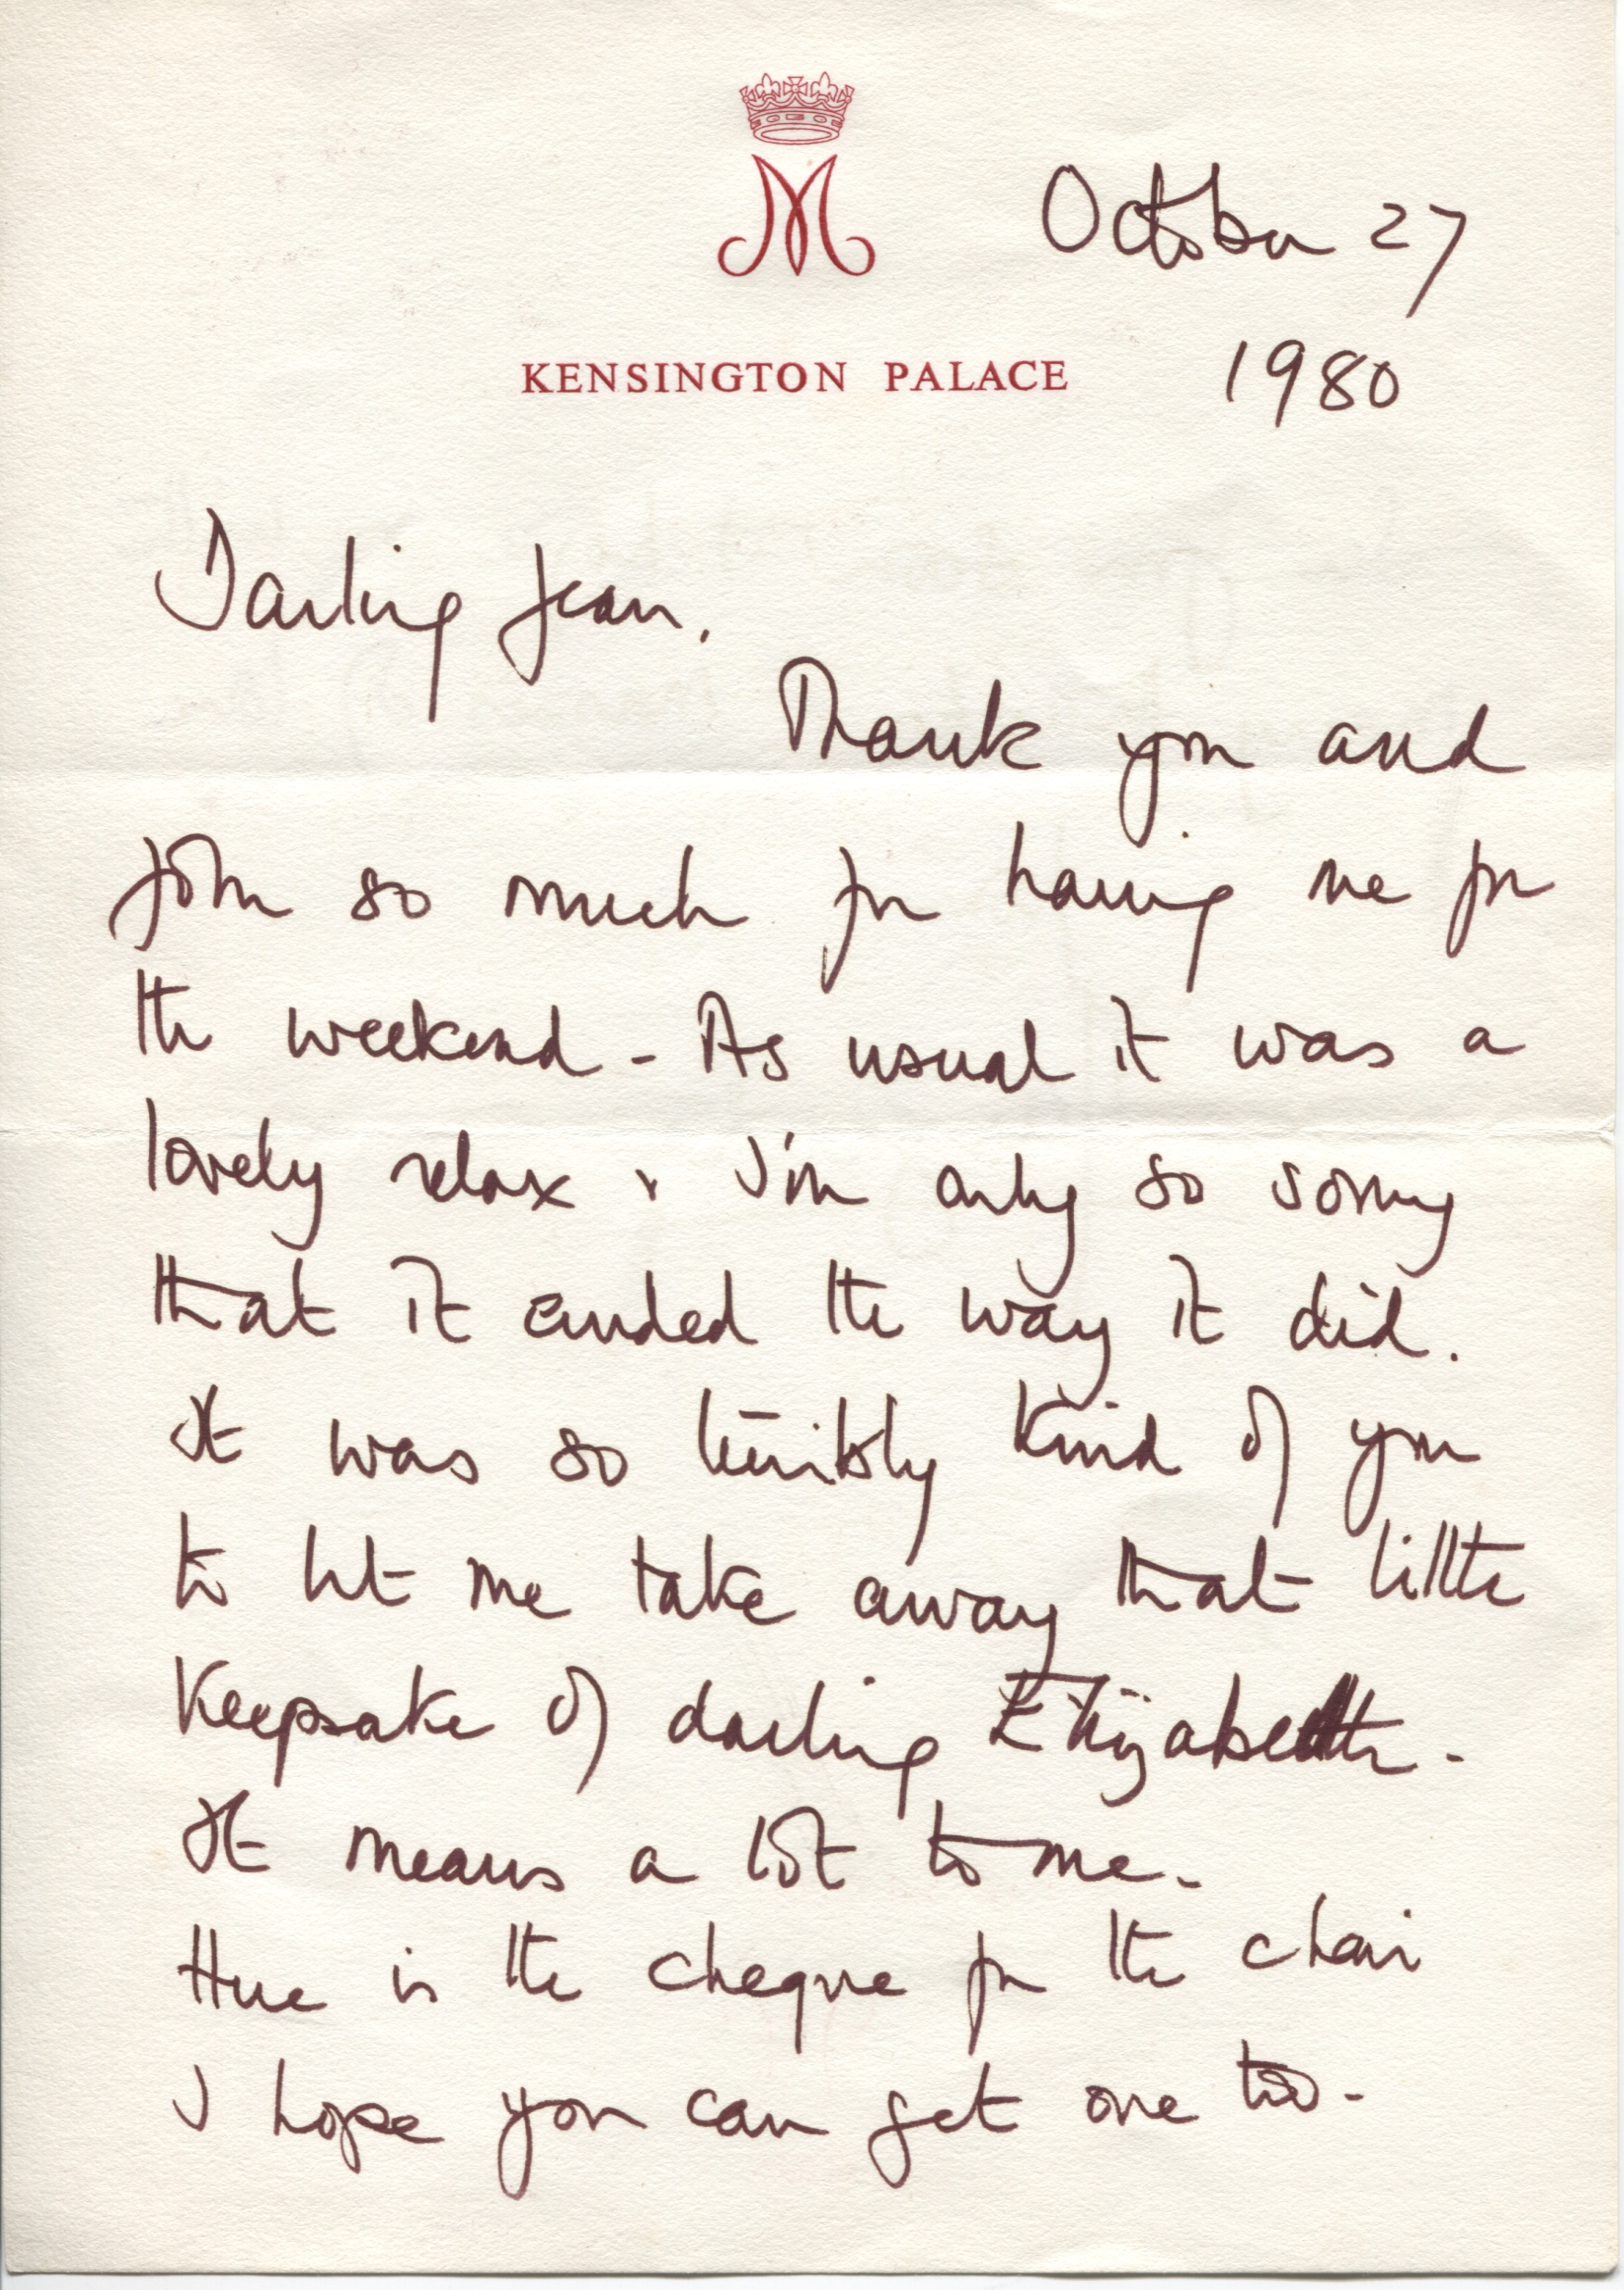 M
October 27
KENSINGTON PALACE
1980
Darling Jean,
Thank you and
John so much for having me for
the weekend - As usual it was a
lovely relax & I'm only so sorry
that it ended the way it did.
It was so terribly kind of you
to let me take away that little
keepsake of darling Elizabeth -
It means a lot to me -
Here is the cheque for the chair
I hope you can get one too -